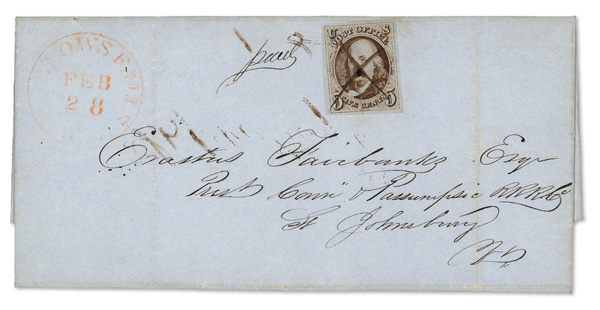 BELLOWS FALLS
FEB
28
paid
POST OFFICE
FIVE CENTS
5 5
Erastus Fairbanks Esqr
Prest Conn & Passumpsic RRRCo
St Johnsbury
Vt